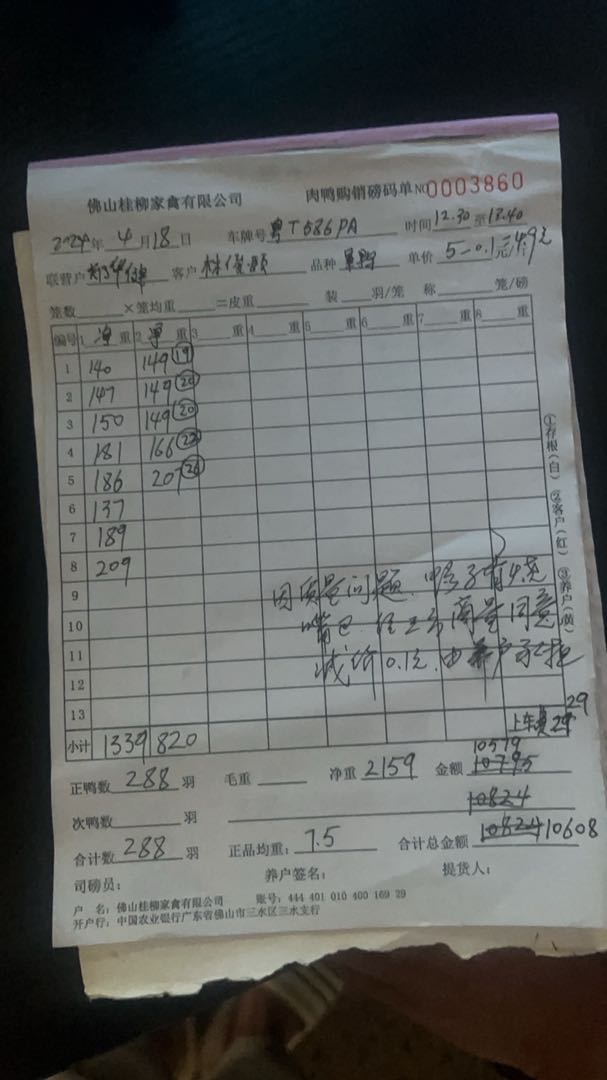 佛山桂柳家禽有限公司 肉鸭购销磅码单 NO 0003860
2024年 4月18日 车牌号 粤T586PA 时间 12.30 至 13.40
联营户 客户 林 品种 单价 5-0.1元 4.9元
笼数 ×笼均重 =皮重 装 羽/笼 称 笼/磅
编号 1 净 重 2 净 重 3 重 4 重 5 重 6 重 7 重 8 重
1 140 149 (19)
2 147 149 (20)
3 150 149 (20)
4 181 166 (22)
5 186 207 (26)
6 137
7 189
8 209
9 因质量问题. 鸭子有烧
10 嘴巴. 经 商量同意
11 减价0.1元. 由养户承担
12
13 上车费 29 29
小计 1339 820
10579
正鸭数 288 羽 毛重 净重 2159 金额 10795
次鸭数 羽 10824
合计数 288 羽 正品均重: 7.5 合计总金额 10824 10608
司磅员: 养户签名: 提货人:
户 名: 佛山桂柳家禽有限公司 账号: 444 401 010 400 169 29
开户行: 中国农业银行广东省佛山市三水区三水支行
①存根(白) ②客户(红) ③养户(黄)